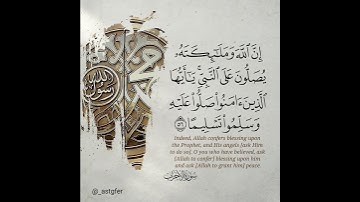 إِنَّ ٱللَّهَ وَمَلَـٰٓئِكَتَهُۥ
يُصَلُّونَ عَلَى ٱلنَّبِىِّ ۚ يَـٰٓأَيُّهَا
ٱلَّذِينَ ءَامَنُوا۟ صَلُّوا۟ عَلَيْهِ
وَسَلِّمُوا۟ تَسْلِيمًا ٥٦
Indeed, Allah confers blessing upon
the Prophet, and His angels [ask Him
to do so]. O you who have believed, ask
[Allah to confer] blessing upon him
and ask [Allah to grant him] peace.
سورة الأحزاب
محمد
رسول الله
@_astgfer